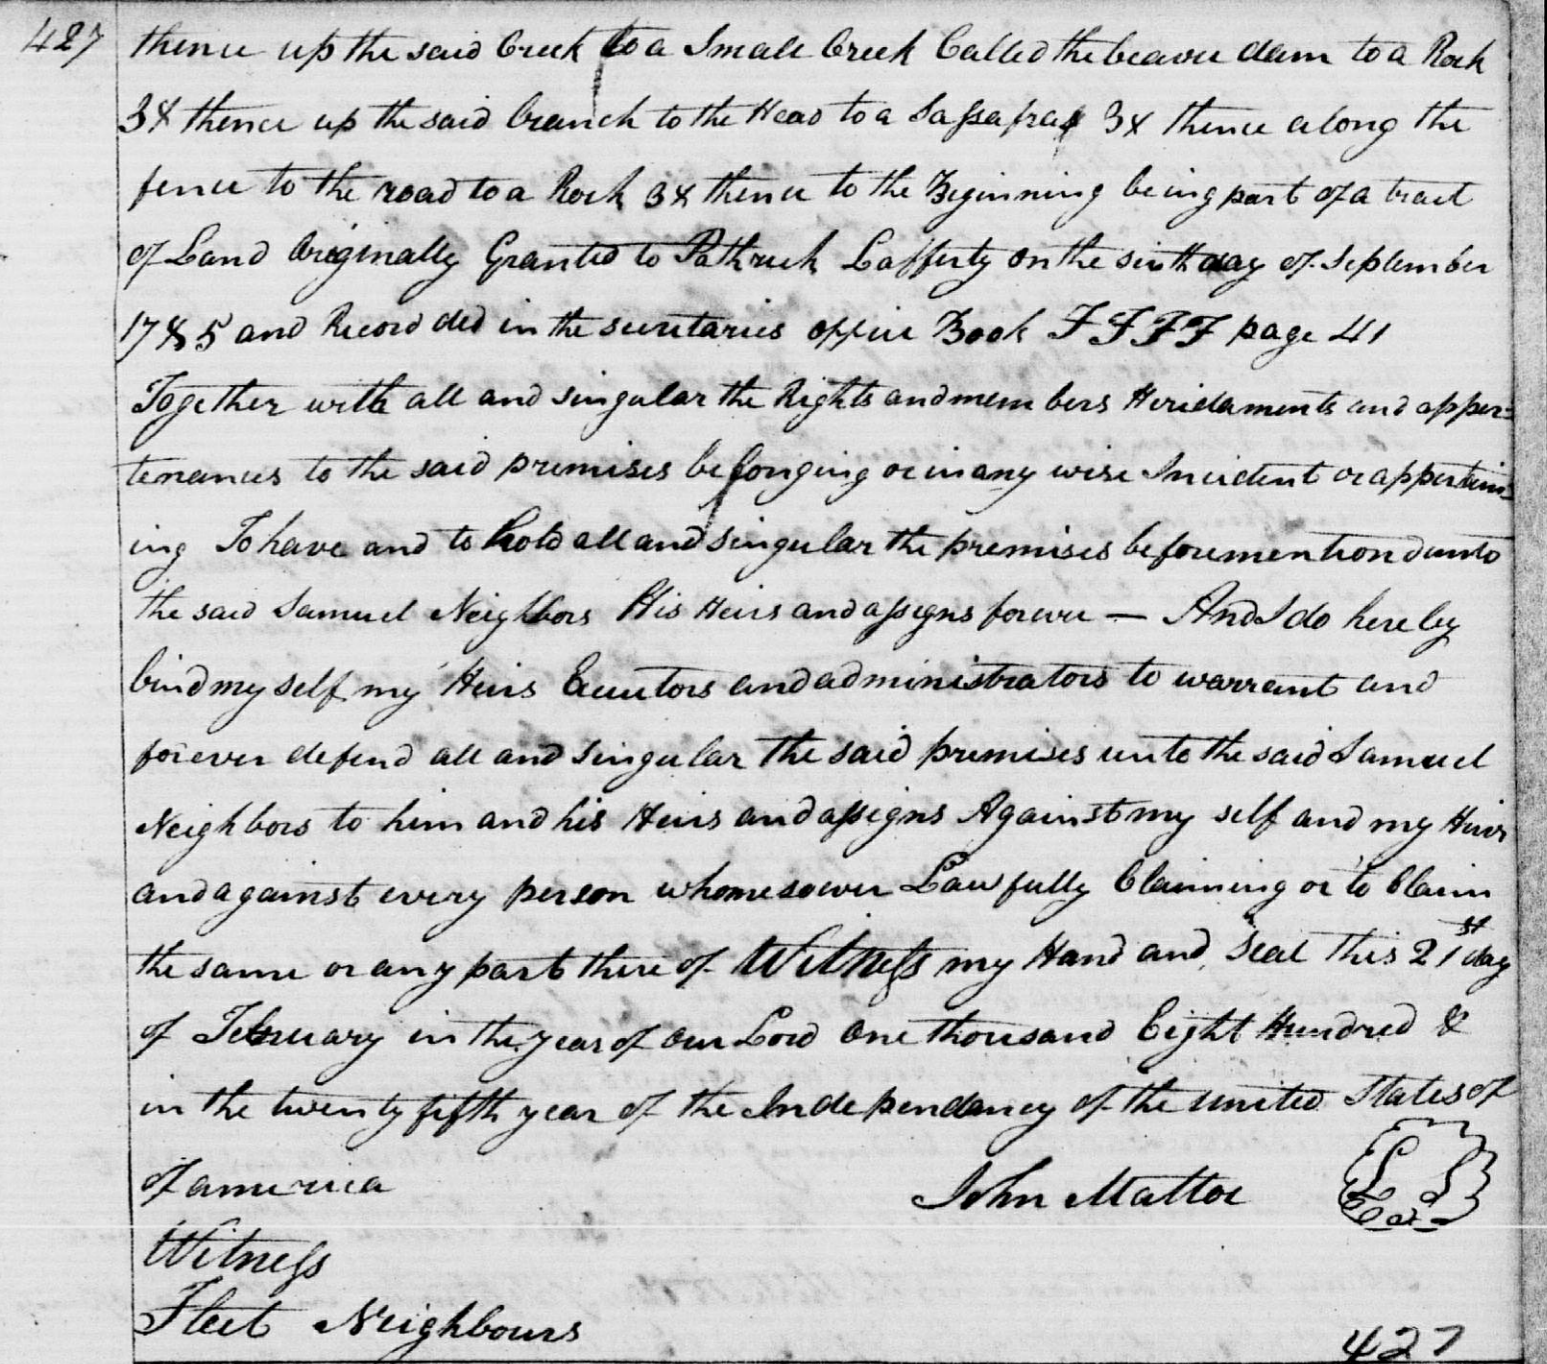 427 thence up the said Creek to a Smale Creek Called the beavre dam to a Rock
3X thence up the said branch to the Head to a Sassafras 3X thence along the
fence to the road to a Rock 3X thence to the Beginning being part of a tract
of Land Originally Granted to Pathrick Lafferty on the sixth day of September
1785 and Recorded in the secretaries office Book FFFF page 41
Together with all and singular the Rights and members Heridaments and apper=
tenances to the said premises belonging or in any wise Incident or appertain=
ing To have and to hold all and singular the premises beforementiond unto
the said Samuel Neighbors His Heirs and assigns forevre — And I do hereby
bind my self my Heirs Executors and administrators to warrant and
forever defend all and singular the said premises unto the said Samuel
Neighbors to him and his Heirs and assigns Against my self and my Heirs
and against every person whomesoever Lawfully Claiming or to Claim
the same or any part there of Witness my Hand and Seal this 21st day
of February in the year of our Lord One thousand Eight Hundred &
in the twenty fifth year of the Independancy of the united States of
of america John Mattoe L S
Witness
Fleet Neighbours
427